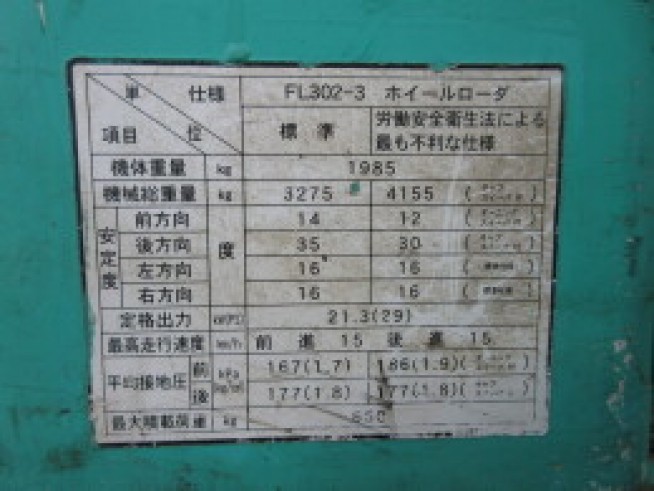 単 仕様 FL302-3 ホイールローダ
項目 位 標準 労働安全衛生法による
最も不利な仕様
機体重量 kg 1985
機械総重量 kg 3275 4155
安定度 前方向 度 14 12
後方向 35 30
左方向 16 16
右方向 16 16
定格出力 kW(PS) 21.3(29)
最高走行速度 km/h 前進 15 後進 15
平均接地圧 前 kPa 167(1.7) 186(1.9)
後 177(1.8) 177(1.8)
最大積載荷重 kg 650